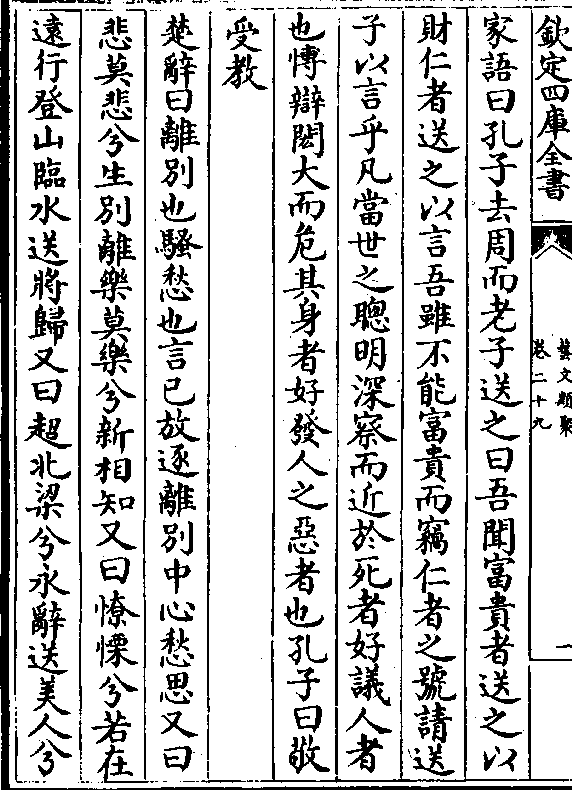 欽定四庫全書
藝文類聚
卷二十九
一
家語曰孔子去周而老子送之曰吾聞富貴者送之以
財仁者送之以言吾雖不能富貴而竊仁者之號請送
子以言乎凡當世之聰明深察而近於死者好議人者
也愽辯閎大而危其身者好發人之惡者也孔子曰敬
受教
楚辭曰離別也騷愁也言已放逐離別中心愁思又曰
悲莫悲兮生別離樂莫樂兮新相知又曰憭慄兮若在
遠行登山臨水送將歸又曰超北梁兮永辭送美人兮